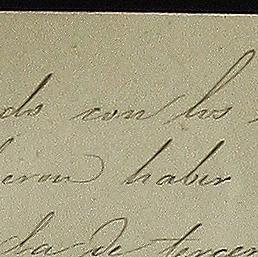 do con los
eron haber
da de tercer